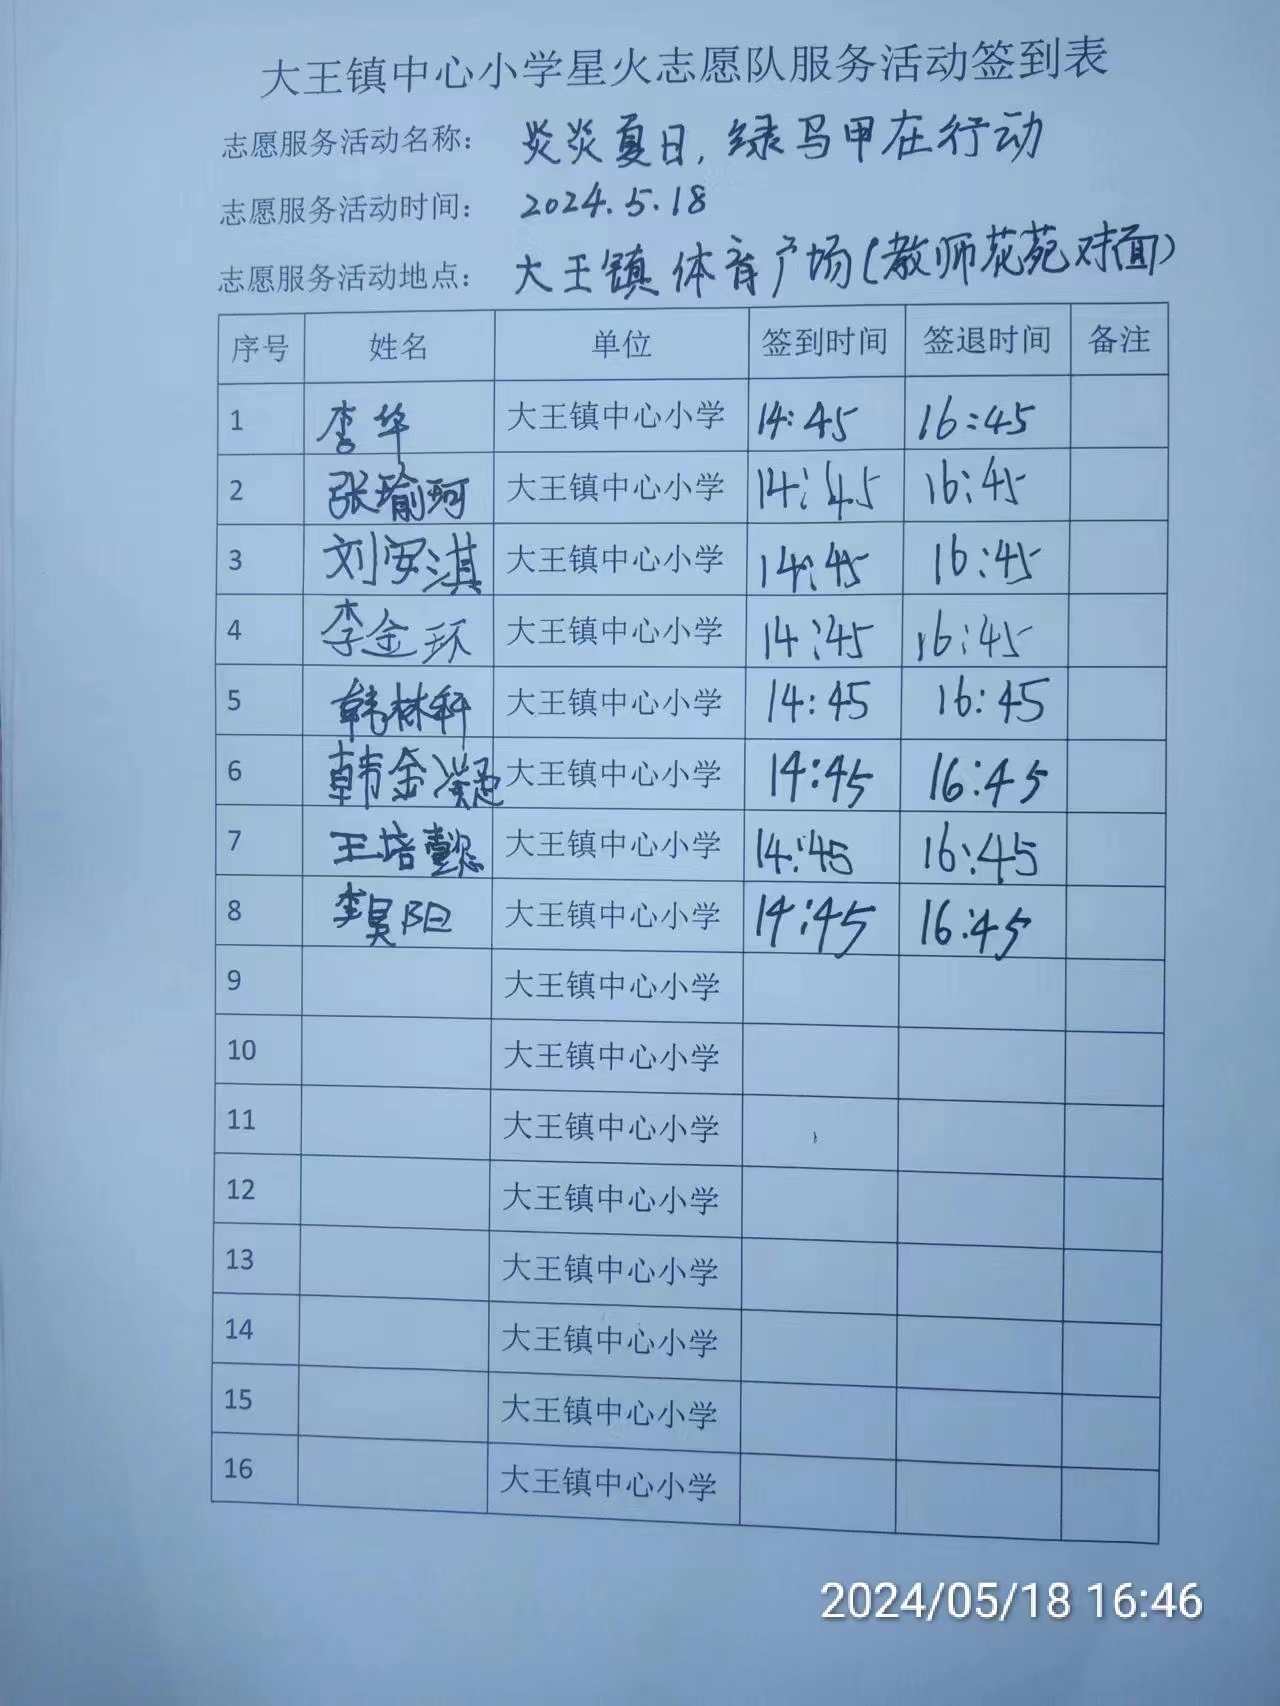 大王镇中心小学星火志愿队服务活动签到表
志愿服务活动名称: 炎炎夏日,绿马甲在行动
志愿服务活动时间: 2024.5.18
志愿服务活动地点: 大王镇体育广场(教师花苑对面)
序号 姓名 单位 签到时间 签退时间 备注
1 李华 大王镇中心小学 14:45 16:45
2 张瑜珂 大王镇中心小学 14:45 16:45
3 刘安淇 大王镇中心小学 14:45 16:45
4 李金环 大王镇中心小学 14:45 16:45
5 韩林科 大王镇中心小学 14:45 16:45
6 韩金凝 大王镇中心小学 14:45 16:45
7 王培懿 大王镇中心小学 14:45 16:45
8 李昊阳 大王镇中心小学 14:45 16:45
9 大王镇中心小学
10 大王镇中心小学
11 大王镇中心小学
12 大王镇中心小学
13 大王镇中心小学
14 大王镇中心小学
15 大王镇中心小学
16 大王镇中心小学
2024/05/18 16:46